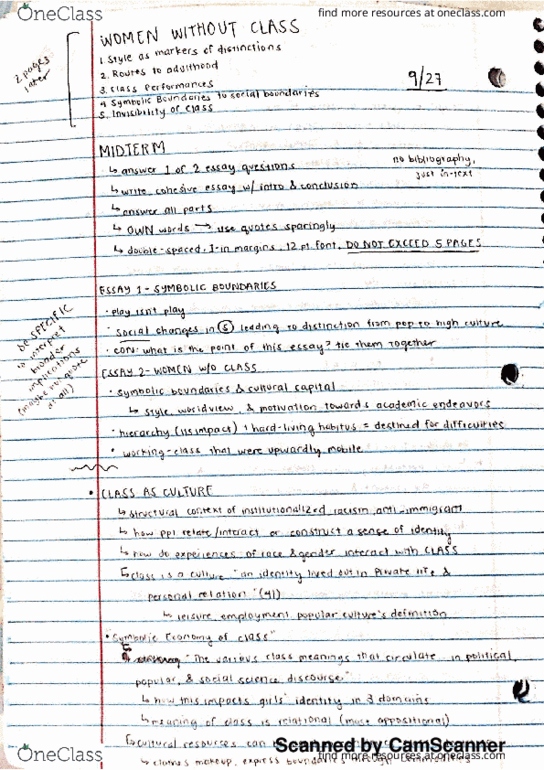 OneClass
find more resources at oneclass.com
WOMEN WITHOUT CLASS
1. Style as markers of distinctions
2. Routes to adulthood
3. Class Performances
4. Symbolic Boundaries to social boundaries
5. Invisibility of class
2 pages later
9/27
MIDTERM
↳ answer 1 of 2 essay questions
no bibliography,
just in-text
↳ write cohesive essay w/ intro & conclusion
↳ answer all parts
↳ OWN words → use quotes sparingly
↳ double-spaced, 1-in margins, 12 pt font, DO NOT EXCEED 5 PAGES
ESSAY 1 - SYMBOLIC BOUNDARIES
· play isn't play
· social changes in (S) leading to distinction from pop to high culture
· CON: what is the point of this essay? tie them together
BE SPECIFIC
to interpret
broader
implications
(maybe not quote
at all)
ESSAY 2 - WOMEN W/O CLASS
· symbolic boundaries & cultural capital
↳ style, worldview, & motivation towards academic endeavors
· hierarchy (its impact) + hard-living habitus = destined for difficulties
· working-class that were upwardly mobile
• CLASS AS CULTURE
↳ structural context of institutionalized racism, anti-immigrant
↳ how ppl relate/interact or construct a sense of identity
↳ how do experiences of race & gender interact with CLASS
↳ class is a culture "an identity lived out in private life &
personal relation" (41)
↳ leisure, employment, popular culture's definition
• "Symbolic Economy of class"
↳ "The various class meanings that circulate in political,
popular, & social science discourse"
↳ how this impacts girls' identity in 3 domains
↳ meaning of class is relational (more oppositional)
↳ cultural resources can
↳ clothes, makeup, express
Scanned by CamScanner
OneClass
find more resources at oneclass.com